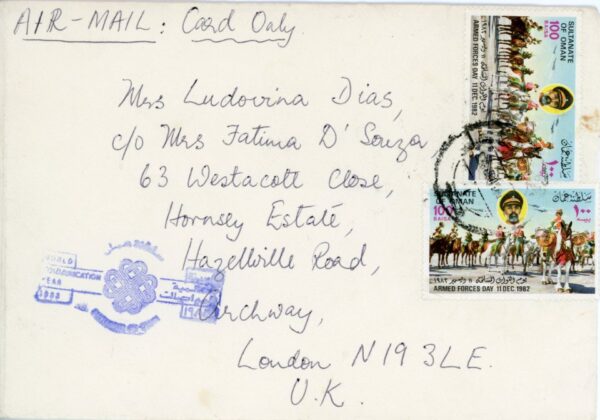 AIR-MAIL: Card Only
SULTANATE
OF OMAN
100
BAISA
ARMED FORCES DAY 11 DEC 1982
سلطنة عمان
١٠٠
Mrs Ludovina Dias,
c/o Mrs Fatima D' Souza
63 Westacott Close,
Hornsey Estate,
Hazellville Road,
Archway,
London N19 3LE.
U.K.
SULTANATE
OF OMAN
100
BAISA
سلطنة عمان
١٠٠
ARMED FORCES DAY 11 DEC 1982
WORLD
COMMUNICATION
YEAR
1983